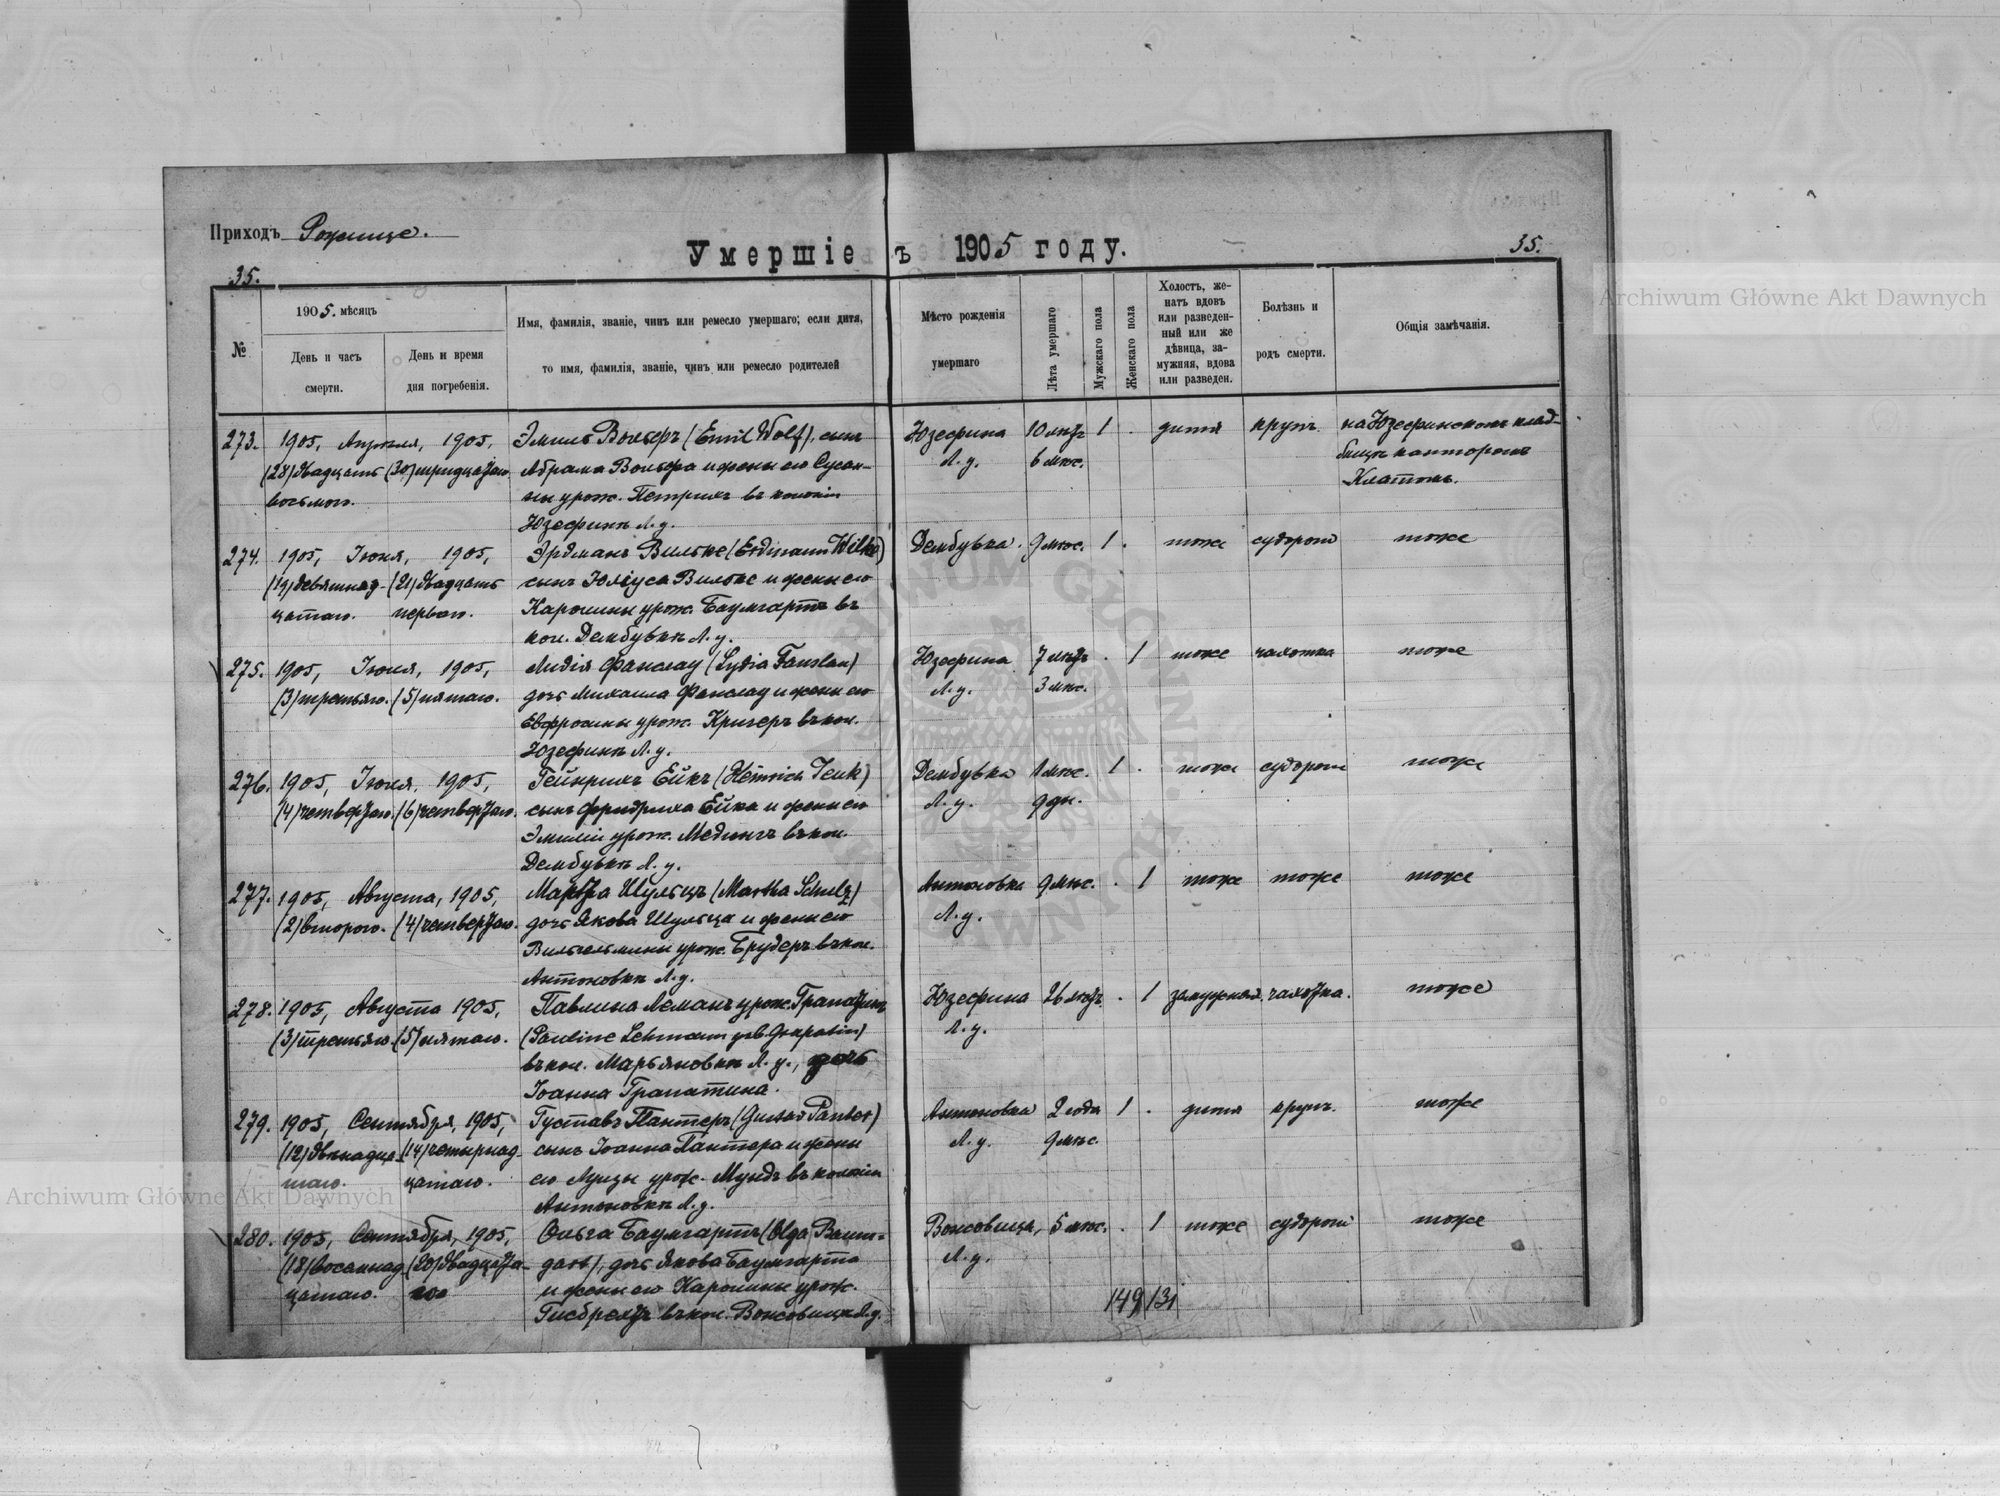 Приходъ Рожище.
Умершіе въ 1905 году.
35.
35.
№
1905. мѣсяцъ
День и часъ смерти.
День и время дня погребенія.
Имя, фамилія, званіе, чинъ или ремесло умершаго; если дитя,
то имя, фамилія, званіе, чинъ или ремесло родителей
Мѣсто рожденія
умершаго
Лѣта умершаго
Мужскаго пола
Женскаго пола
Холостъ, же-
натъ вдовъ
или разведен-
ный или же
дѣвица, за-
мужняя, вдова
или разведен.
Болѣзнь и
родъ смерти.
Общія замѣчанія.
273. 1905, Апрѣля, 1905, Эмиль Вольфъ (Emil Wolf), сынъ Юзефина 10 лѣтъ 1 . дитя крупъ. на Юзефинскомъ клад-
(28) двадцать (30) тридцатаго. Абрама Вольфа и жены его Сусан- Л. у. 6 мѣс. бищѣ канторомъ
восьмого. ны урож. Петрихъ въ колоніи Клаттомъ.
Юзефинѣ Л. у.
274. 1905, Іюня, 1905, Эрдманъ Вильке (Erdmann Wilke) Дембувка. 9 мѣс. 1 . тоже судороги тоже
(19) девятнад- (21) двадцать сынъ Юліуса Вильке и жены его
цатаго. перваго. Каролины урож. Баумгартъ въ
кол. Дембувкѣ Л. у.
275. 1905, Іюля, 1905, Лидія Фанслау (Lydia Fanslau) Юзефина 7 лѣтъ . 1 тоже чахотка тоже
(3) третьяго. (5) пятаго. дочь Михаила Фанслау и жены его Л. у. 3 мѣс.
Евфросины урож. Кригеръ въ кол.
Юзефинѣ Л. у.
276. 1905, Іюля, 1905, Гейнрихъ Ейкъ (Heinrich Jeuk) Дембувка 1 мѣс. 1 . тоже судороги тоже
(4) четвертаго. (6) сынъ Фридриха Ейка и жены его Л. у. 9 дн.
Эмиліи урож. Медингъ въ кол.
Дембувкѣ Л. у.
277. 1905, Августа, 1905, Марта Шульцъ (Martha Schulz) Антоновка 9 мѣс. . 1 тоже тоже тоже
(2) второго. (4) четвертаго. дочь Якова Шульца и жены его Л. у.
Вильгельмины урож. Брудеръ въ кол.
Антоновкѣ Л. у.
278. 1905, Августа 1905, Павлина Леманъ урож. Грапатинъ Юзефина 26 лѣтъ . 1 замужняя. чахотка. тоже
(3) третьяго. (5) пятаго. (Pauline Lehmann geb. Grapatin) Л. у.
въ кол. Марьяновкѣ Л. у., дочь
Іоанна Грапатина.
279. 1905, Сентября, 1905, Густавъ Пантеръ (Gustav Panter) Антоновка 2 года 1 . дитя крупъ. тоже
(12) двѣнадца- (14) четырнад- сынъ Іоанна Пантера и жены Л. у. 9 мѣс.
таго. цатаго. его Луизы урож. Мундъ въ колоніи
Антоновкѣ Л. у.
280. 1905, Сентября, 1905, Ольга Баумгартъ (Olga Baum- Воисовица, 5 мѣс. . 1 тоже судороги тоже
(18) восемнад- (20) двадцата- дочь Якова Баумгарта Л. у.
цатаго. го и жены его Каролины урож.
Гисбрехтъ въ кол. Л. у.
149 131
Archiwum Główne Akt Dawnych
Archiwum Główne Akt Dawnych